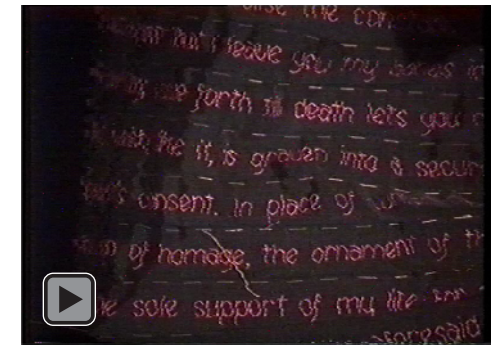 the
but I leave you my bones in
forth til death lets you
the it, is graven into a secur
consent. In place of
of homage, the ornament of th
sole support of my life for
aforesaid